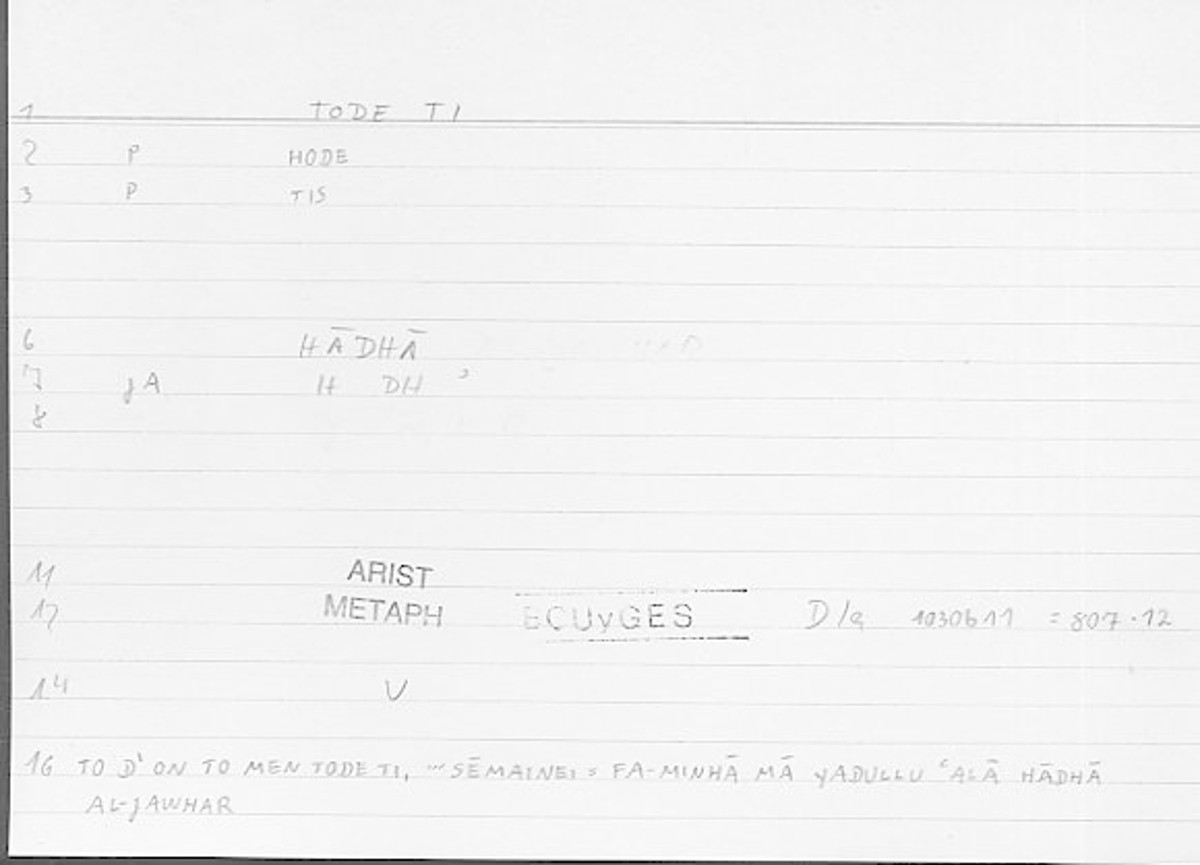 1 TODE TI
2 P HODE
3 P TIS
6 HĀDHĀ
7 jA H DH ʾ
8
11 ARIST
12 METAPH ECUyGES D/a 1030b11 = 807.12
14 V
16 TO D' ON TO MEN TODE TI, ... SĒMAINEI = FA-MINHĀ MĀ yADULLU ʿALĀ HĀDHĀ
AL-jAWHAR